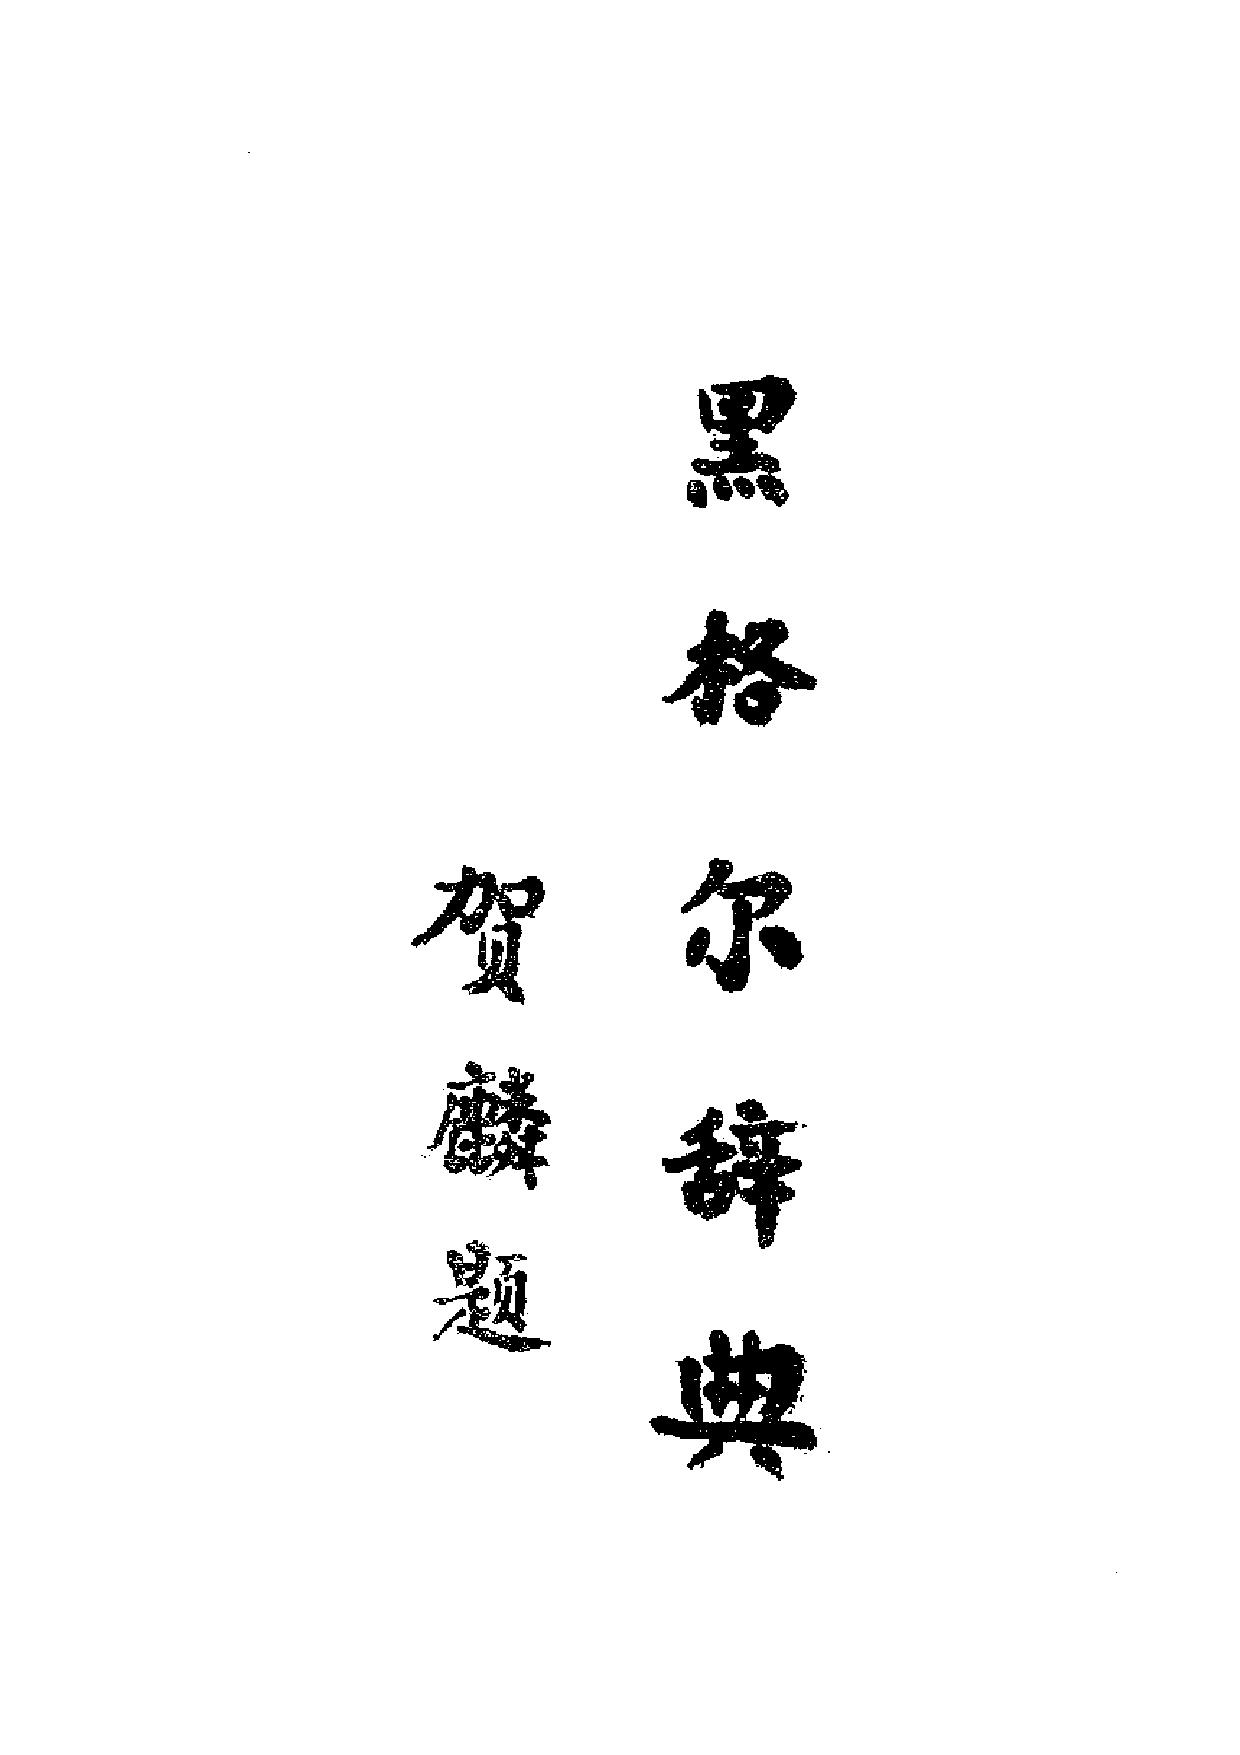 黑格尔辞典
贺麟题